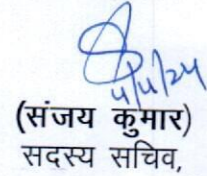 4/4/24
(संजय कुमार)
सदस्य सचिव,